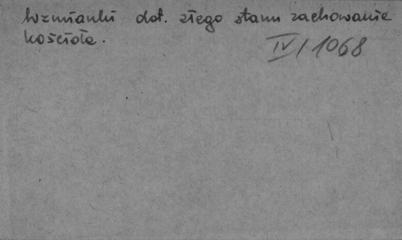 Wzmianki dot. złego stanu zachowanie
kościoła.
IV/1068